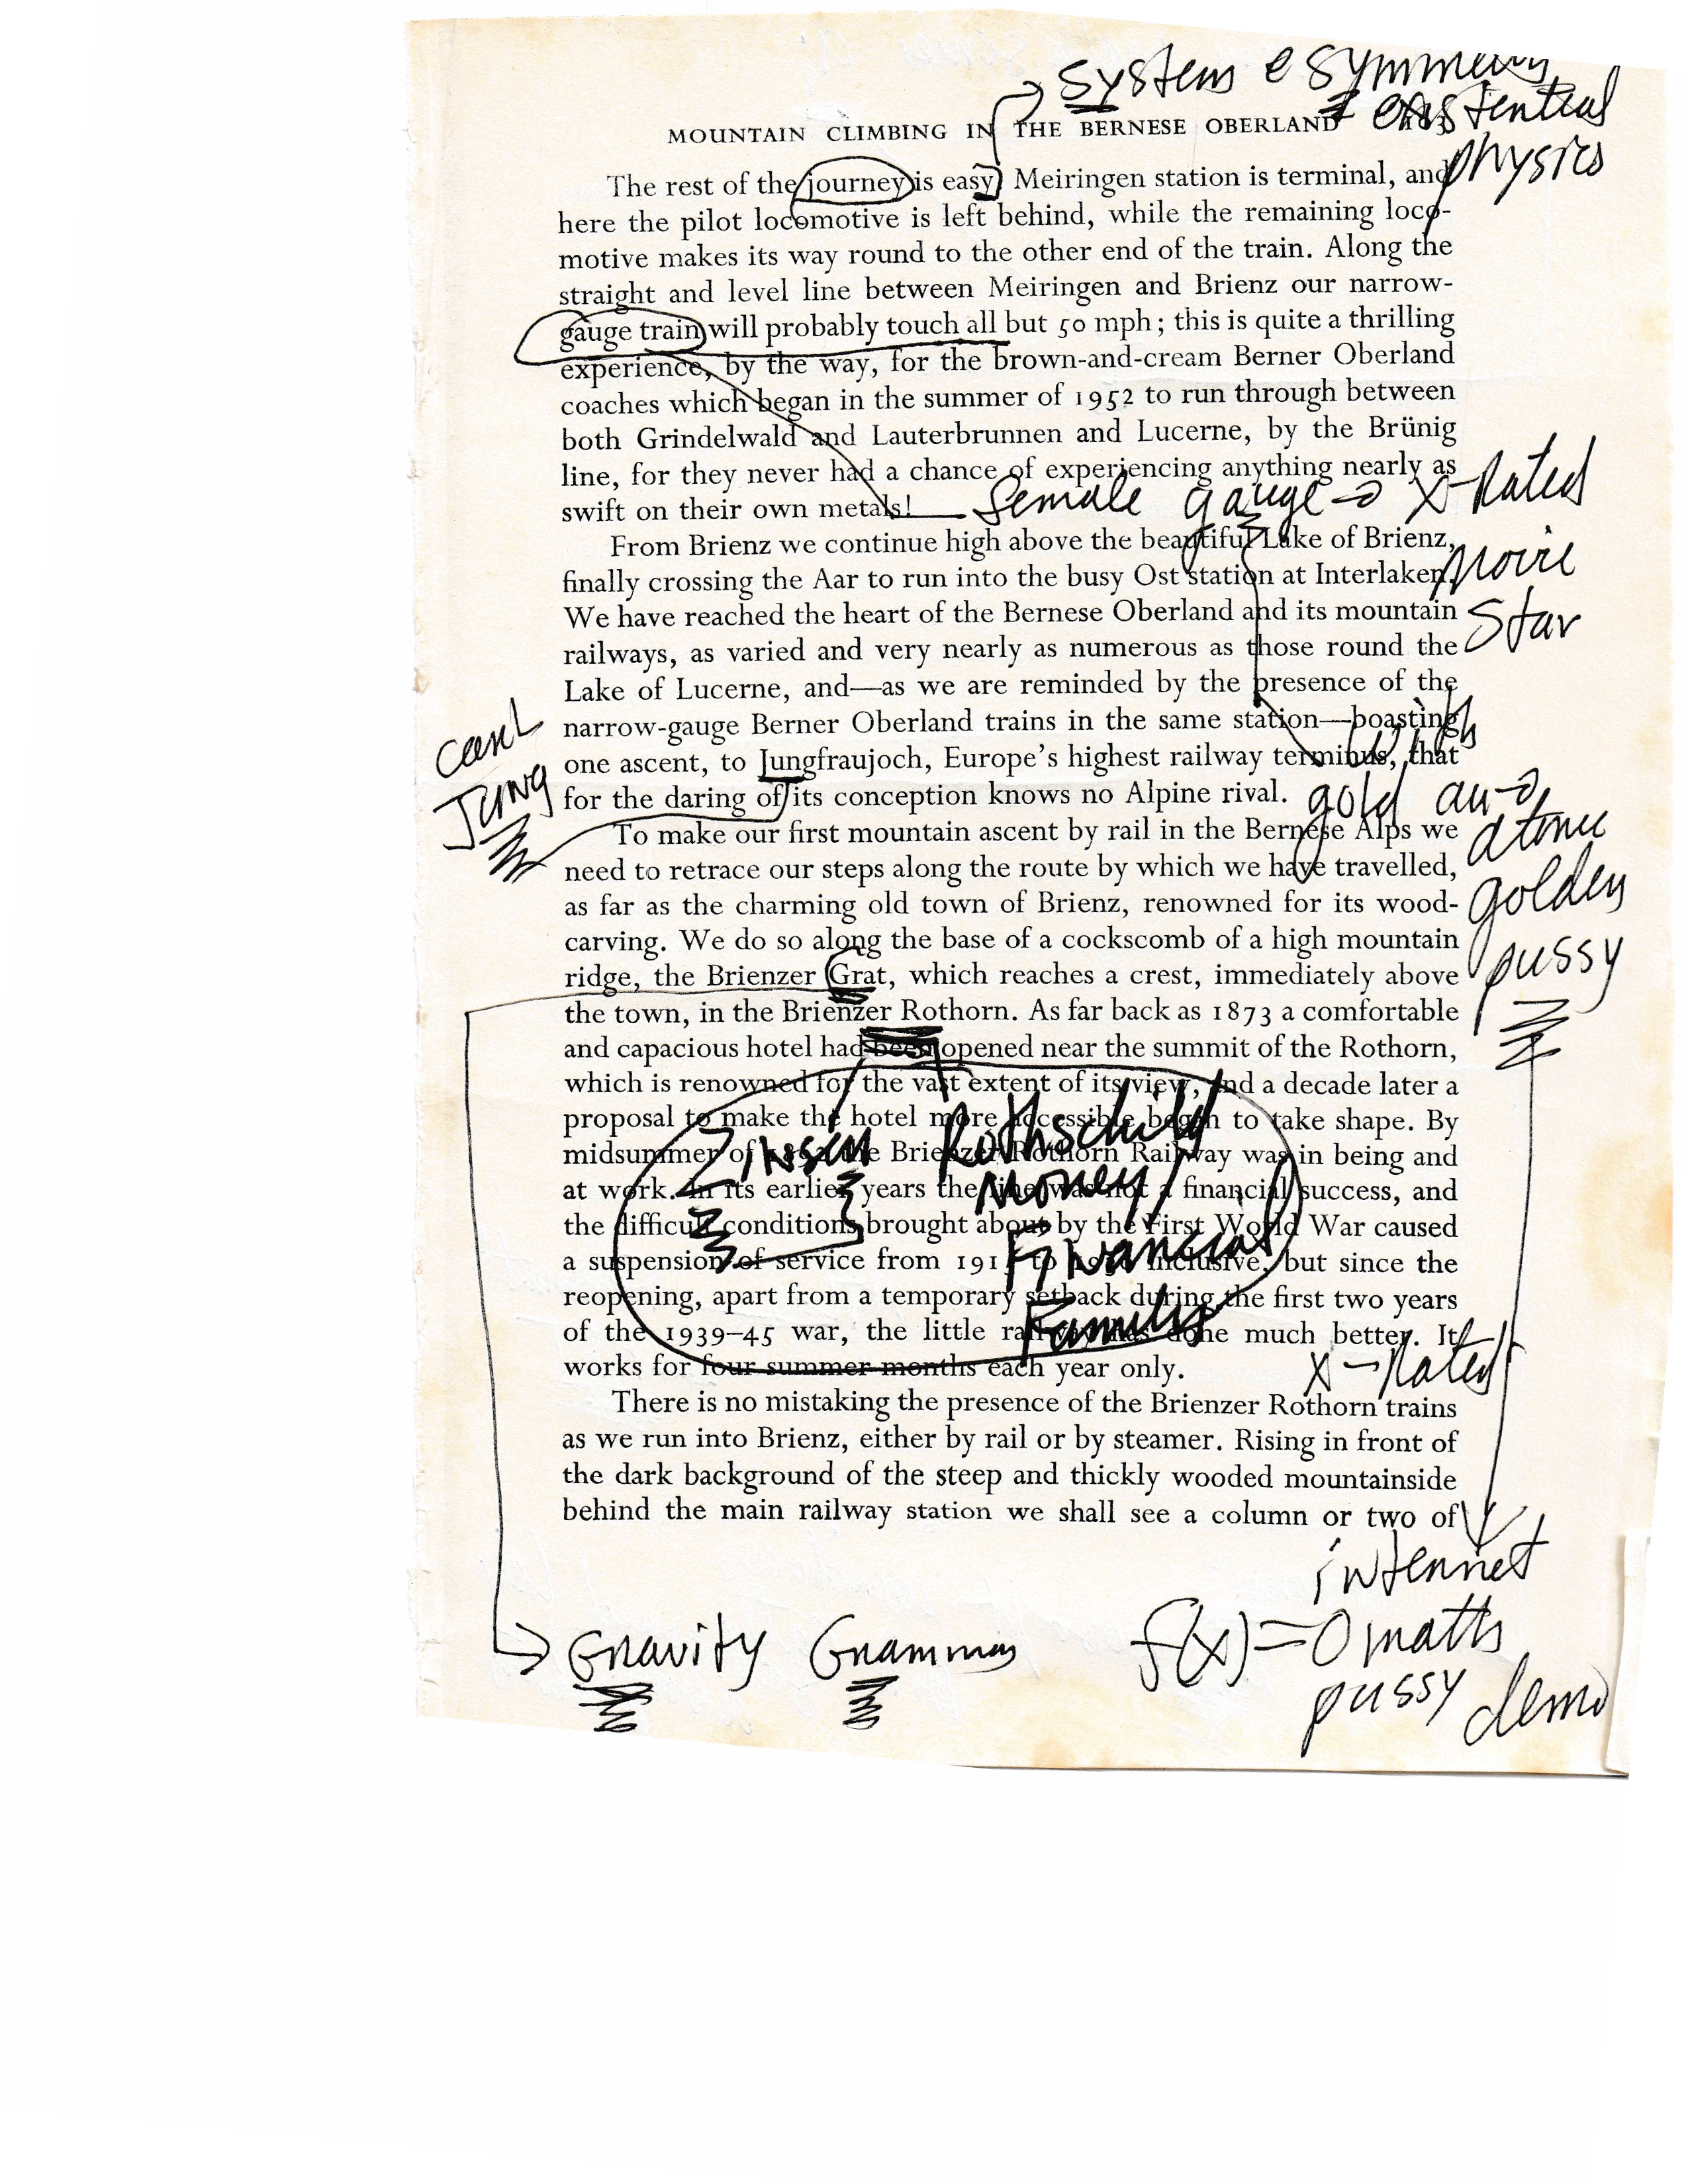 system e symmetry
existential
MOUNTAIN CLIMBING IN THE BERNESE OBERLAND
physics
The rest of the journey is easy. Meiringen station is terminal, and
here the pilot locomotive is left behind, while the remaining loco-
motive makes its way round to the other end of the train. Along the
straight and level line between Meiringen and Brienz our narrow-
gauge train will probably touch all but 50 mph; this is quite a thrilling
experience, by the way, for the brown-and-cream Berner Oberland
coaches which began in the summer of 1952 to run through between
both Grindelwald and Lauterbrunnen and Lucerne, by the Brünig
line, for they never had a chance of experiencing anything nearly as
swift on their own metals!
female gauge → X-Rated
movie
star
From Brienz we continue high above the beautiful Lake of Brienz,
finally crossing the Aar to run into the busy Ost station at Interlaken.
We have reached the heart of the Bernese Oberland and its mountain
railways, as varied and very nearly as numerous as those round the
Lake of Lucerne, and—as we are reminded by the presence of the
narrow-gauge Berner Oberland trains in the same station—boasting
one ascent, to Jungfraujoch, Europe's highest railway terminus, that
for the daring of its conception knows no Alpine rival.
Carl
Jung
with
gold au →
atomic
golden
pussy
To make our first mountain ascent by rail in the Bernese Alps we
need to retrace our steps along the route by which we have travelled,
as far as the charming old town of Brienz, renowned for its wood-
carving. We do so along the base of a cockscomb of a high mountain
ridge, the Brienzer Grat, which reaches a crest, immediately above
the town, in the Brienzer Rothorn. As far back as 1873 a comfortable
and capacious hotel had been opened near the summit of the Rothorn,
which is renowned for the vast extent of its view, and a decade later a
proposal to make the hotel more accessible began to take shape. By
midsummer of 1892 the Brienzer Rothorn Railway was in being and
at work. In its earlier years the line was not a financial success, and
the difficult conditions brought about by the First World War caused
a suspension of service from 191 to inclusive, but since the
reopening, apart from a temporary setback during the first two years
of the 1939–45 war, the little railway has done much better. It
works for four summer months each year only.
Zinsen Rothschild
Money
Financial
Family
X-Rated
There is no mistaking the presence of the Brienzer Rothorn trains
as we run into Brienz, either by rail or by steamer. Rising in front of
the dark background of the steep and thickly wooded mountainside
behind the main railway station we shall see a column or two of
internet
Gravity Grammar f(x)=0 maths
pussy demo